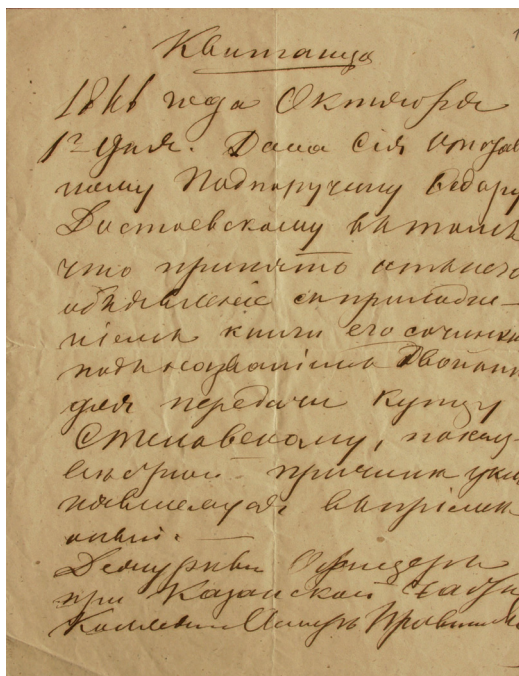 Квитанція
1866 года Октября
1го дня. Дана сія отстав
ному Подпоручику Ѳедору
Достоевскому въ томъ
что принято отъ него
объявленіе съ приложе-
ніемъ книги его сочиненія
подъ названіемъ
для передачи Купцу
Стеловскому, по
причинѣ укло
нявшемуся въ пріемѣ
оной.
Дежурный Офицеръ
при Казанской Части